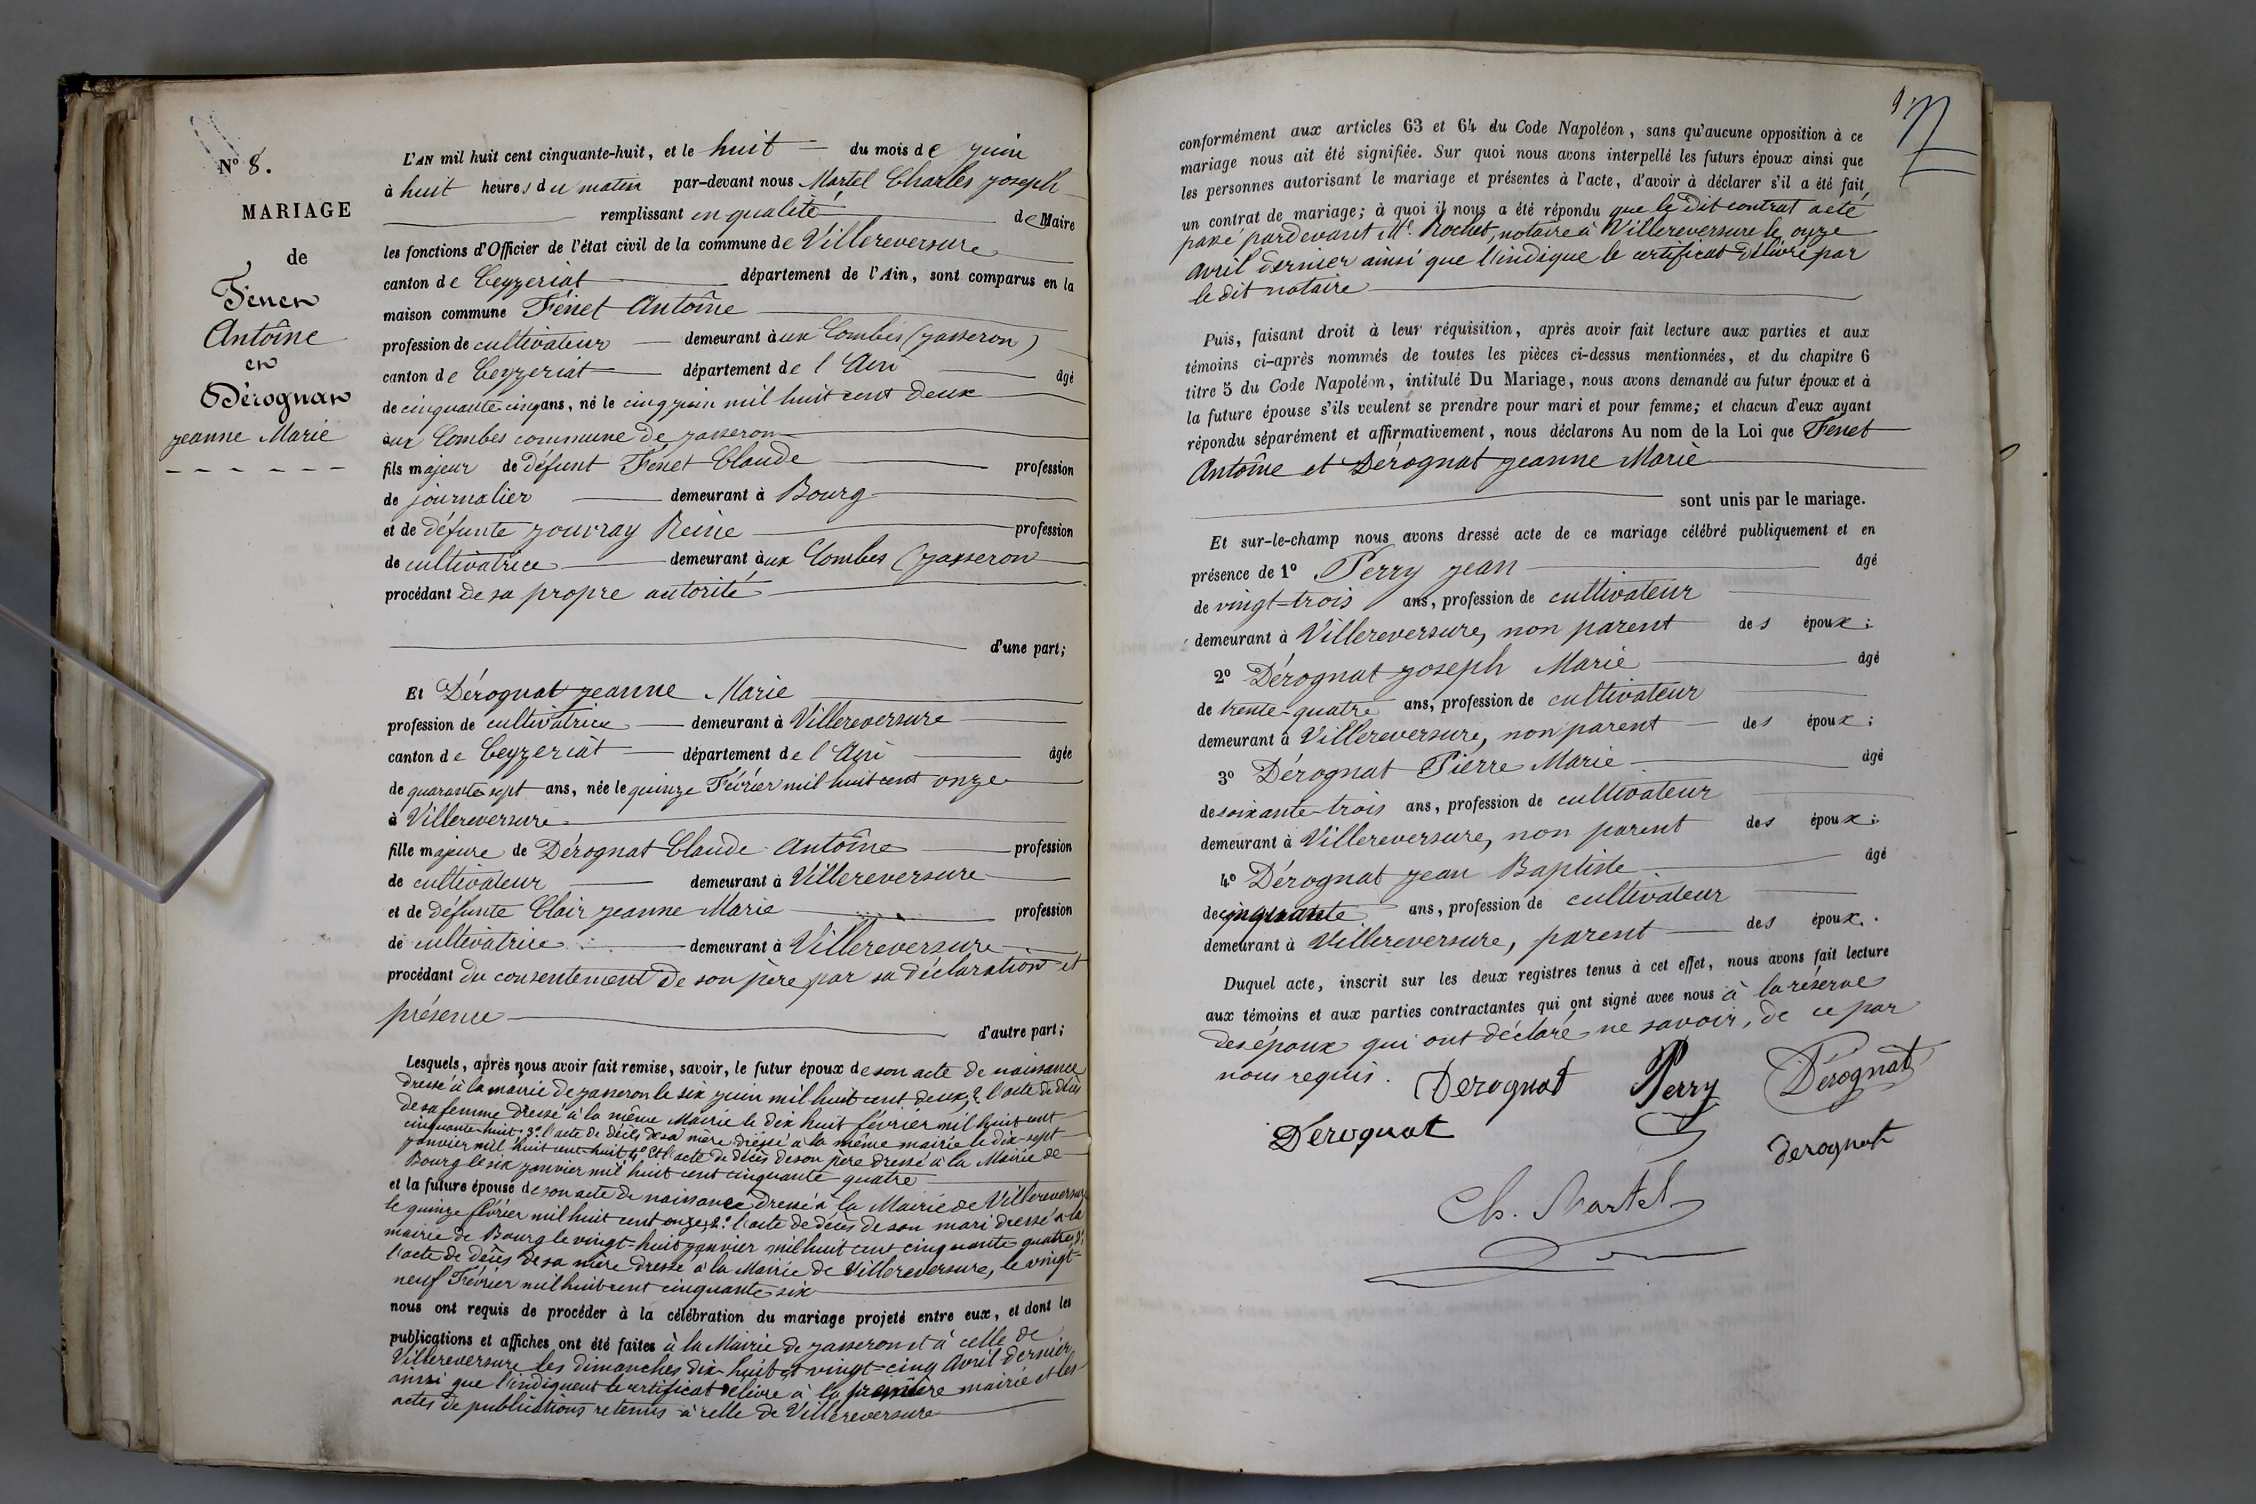 N° 8.
MARIAGE
de
Fenet
Antoîne
et
Dérognat
Jeanne Marie
L'AN mil huit cent cinquante-huit, et le huit du mois de Juin
à huit heures du matin par-devant nous Martel Charles Joseph
remplissant en qualité de Maire
les fonctions d'Officier de l'état civil de la commune de Villereversure
canton de Ceyzeriat département de l'Ain, sont comparus en la
maison commune Fénet Antoîne
profession de cultivateur demeurant aux Combes (Jasseron)
canton de Ceyzeriat département de l'Ain âgé
de cinquante cinq ans, né le cinq juin mil huit cent deux
aux Combes commune de Jasseron
fils majeur de défunt Fénet Claude profession
de journalier demeurant à Bourg
et de défunte Jouvray Reine profession
de cultivatrice demeurant aux Combes (Jasseron
procédant de sa propre autorité
d'une part;
Et Dérognat Jeanne Marie
profession de cultivatrice demeurant à Villereversure
canton de Ceyzeriat département de l'Ain âgée
de quarante sept ans, née le quinze Février mil huit cent onze
à Villereversure
fille majeure de Dérognat Claude Antoîne profession
de cultivateur demeurant à Villereversure
et de défunte Clair Jeanne Marie profession
de cultivatrice demeurant à Villereversure
procédant du consentement de son père par sa déclaration et
présence
d'autre part;
Lesquels, après nous avoir fait remise, savoir, le futur époux de son acte de naissance
dressé à la mairie de Jasseron le six juin mil huit cent deux, 2° l'acte de décès
de sa femme dressé à la même Mairie le dix huit février mil huit cent
cinquante-huit, 3° l'acte de décès de sa mère dressé à la même mairie le dix-sept
janvier mil huit cent huit 4° Et l'acte de décès de son père dressé à la Mairie de
Bourg le six janvier mil huit cent cinquante quatre
et la future épouse de son acte de naissance dressé à la Mairie de Villereversure
le quinze février mil huit cent onze, 2° l'acte de décès de son mari dressé à la
mairie de Bourg le vingt-huit janvier mil huit cent cinquante quatre, 3°
l'acte de décès de sa mère dressé à la Mairie de Villereversure, le vingt-
neuf Février mil huit cent cinquante six
nous ont requis de procéder à la célébration du mariage projeté entre eux, et dont les
publications et affiches ont été faites à la Mairie de Jasseron et à celle de
Villereversure les dimanches dix-huit et vingt-cinq Avril dernier,
ainsi que l'indiquent le certificat délivré à la première mairie et les
actes de publications retenus à celle de Villereversure
conformément aux articles 63 et 64 du Code Napoléon, sans qu'aucune opposition à ce
mariage nous ait été signifiée. Sur quoi nous avons interpellé les futurs époux ainsi que
les personnes autorisant le mariage et présentes à l'acte, d'avoir à déclarer s'il a été fait
un contrat de mariage; à quoi il nous a été répondu que le dit contrat a été
passé pardevant Me. Rochet, notaire à Villereversure le onze
avril dernier ainsi que l'indique le certificat délivré par
le dit notaire
Puis, faisant droit à leur réquisition, après avoir fait lecture aux parties et aux
témoins ci-après nommés de toutes les pièces ci-dessus mentionnées, et du chapitre 6
titre 5 du Code Napoléon, intitulé Du Mariage, nous avons demandé au futur époux et à
la future épouse s'ils veulent se prendre pour mari et pour femme; et chacun d'eux ayant
répondu séparément et affirmativement, nous déclarons Au nom de la Loi que Fenet
Antoîne et Dérognat Jeanne Marie
sont unis par le mariage.
Et sur-le-champ nous avons dressé acte de ce mariage célébré publiquement et en
présence de 1° Perry Jean âgé
de vingt-trois ans, profession de cultivateur
demeurant à Villereversure, non parent des époux;
2° Dérognat Joseph Marie âgé
de trente-quatre ans, profession de cultivateur
demeurant à Villereversure, non parent des époux;
3° Dérognat Pierre Marie âgé
de soixante-trois ans, profession de cultivateur
demeurant à Villereversure, non parent des époux;
4° Dérognat Jean Baptiste âgé
de cinquante ans, profession de cultivateur
demeurant à Villereversure, parent des époux.
Duquel acte, inscrit sur les deux registres tenus à cet effet, nous avons fait lecture
aux témoins et aux parties contractantes qui ont signé avec nous à la réserve
des époux qui ont déclaré ne savoir, de ce par
nous requis.
Derognat Perry Dérognat
Derognat derognat
Ch. Martel